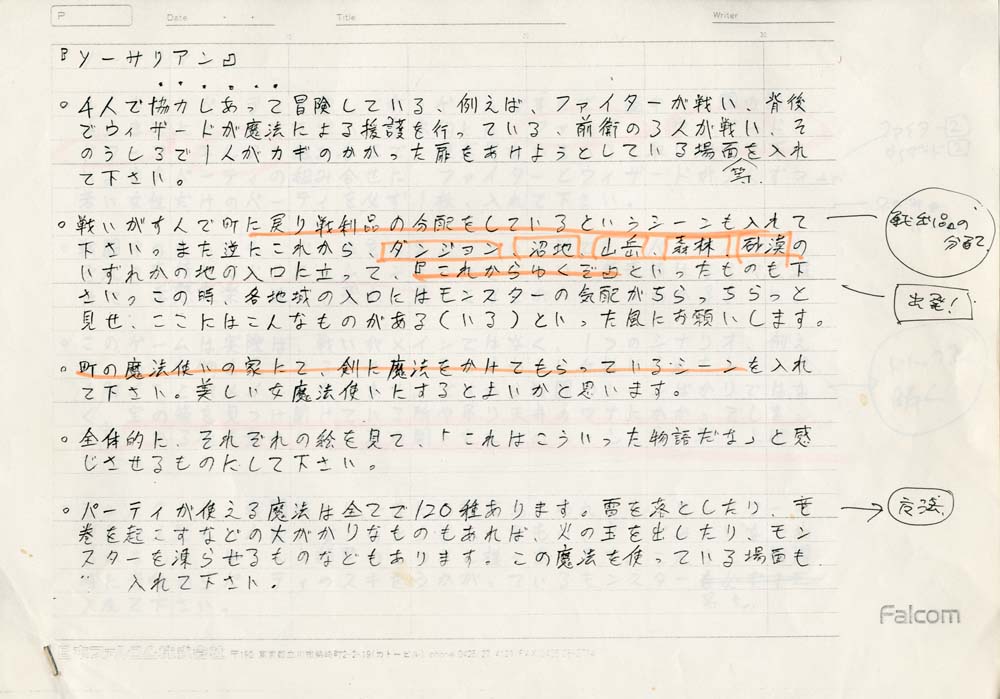 P
Date
Title
Writer
『ソーサリアン』
。4人で協力しあって冒険している、例えば、ファイターが戦い、背後
でウィザードが魔法による援護を行っている、前衛の3人が戦い、そ
のうしろで1人がカギのかかった扉をあけようとしている場面を入れ
等
て下さい。
。戦いがすんで町に戻り戦利品の分配をしているというシーンも入れて
下さい。また逆にこれから、ダンジョン、沼地、山岳、森林、砂漠の
いずれかの地の入口に立って、『これからゆくぞ』といったものも下
さい。この時、各地域の入口にはモンスターの気配がちらっちらっと
見せ、ここにはこんなものがある(いる)といった風にお願いします。
戦利品の
分配
出発!
。町の魔法使いの家にて、剣に魔法をかけてもらっているシーンを入れ
て下さい。美しい女魔法使いにするとよいかと思います。
。全体的に、それぞれの絵を見て「これはこういった物語だな」と感
じさせるものにして下さい。
。パーティが使える魔法は全てで120種あります。雷を落としたり、竜
巻を起こすなどの大がかりなものもあれば、火の玉を出したり、モン
スターを凍らせるものなどもあります。この魔法を使っている場面も
入れて下さい。
魔法
Falcom
日本ファルコム株式会社 〒190 東京都立川市柴崎町2-2-19(カトービル) phone 0425